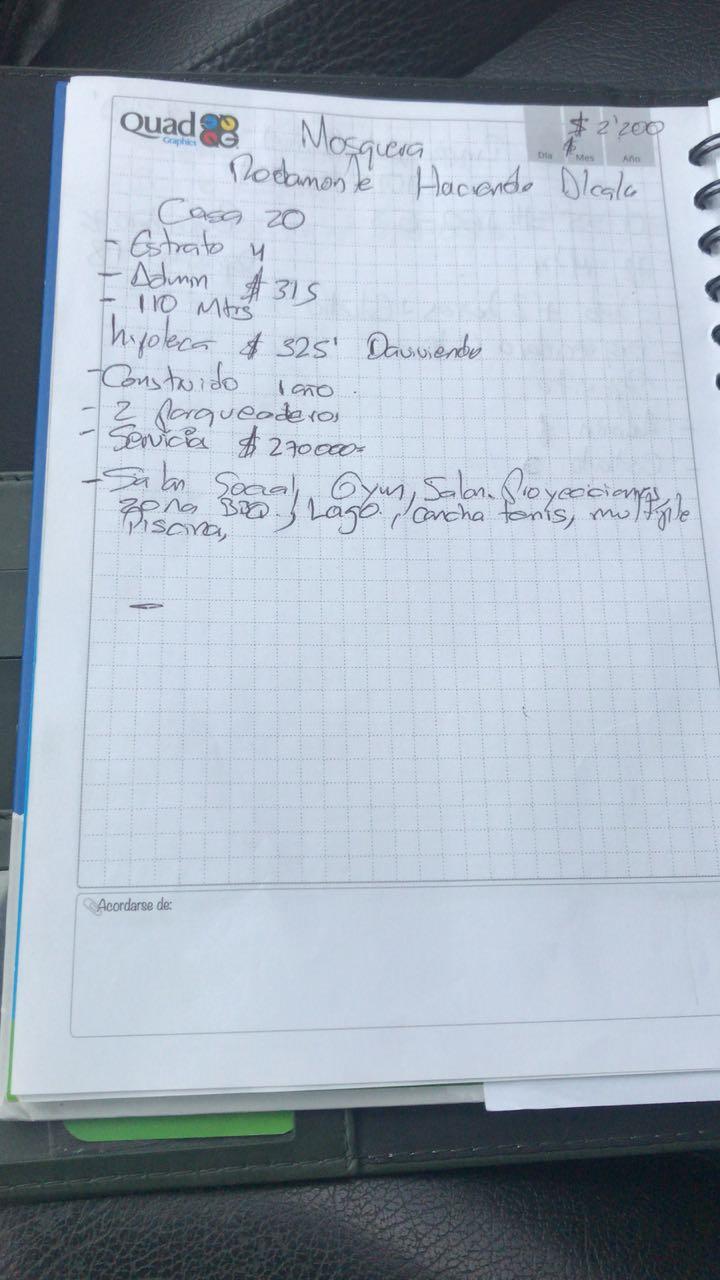 Quad
Graphics
Mosquera
$ 2'200
$
Día Mes Año
Rodamonte Hacienda Alcala
Casa 20
- Estrato 4
- Admin $ 315
- 110 Mtrs
hipoteca $ 325' Davivienda
- Construido 1 año.
- 2 Parqueaderos
- Servicios $ 270000=
- Salon Social, Gym, Salon. Proyecciones,
zona BBQ, Lago, cancha tenis, multiple
Piscina,
-
Acordarse de: